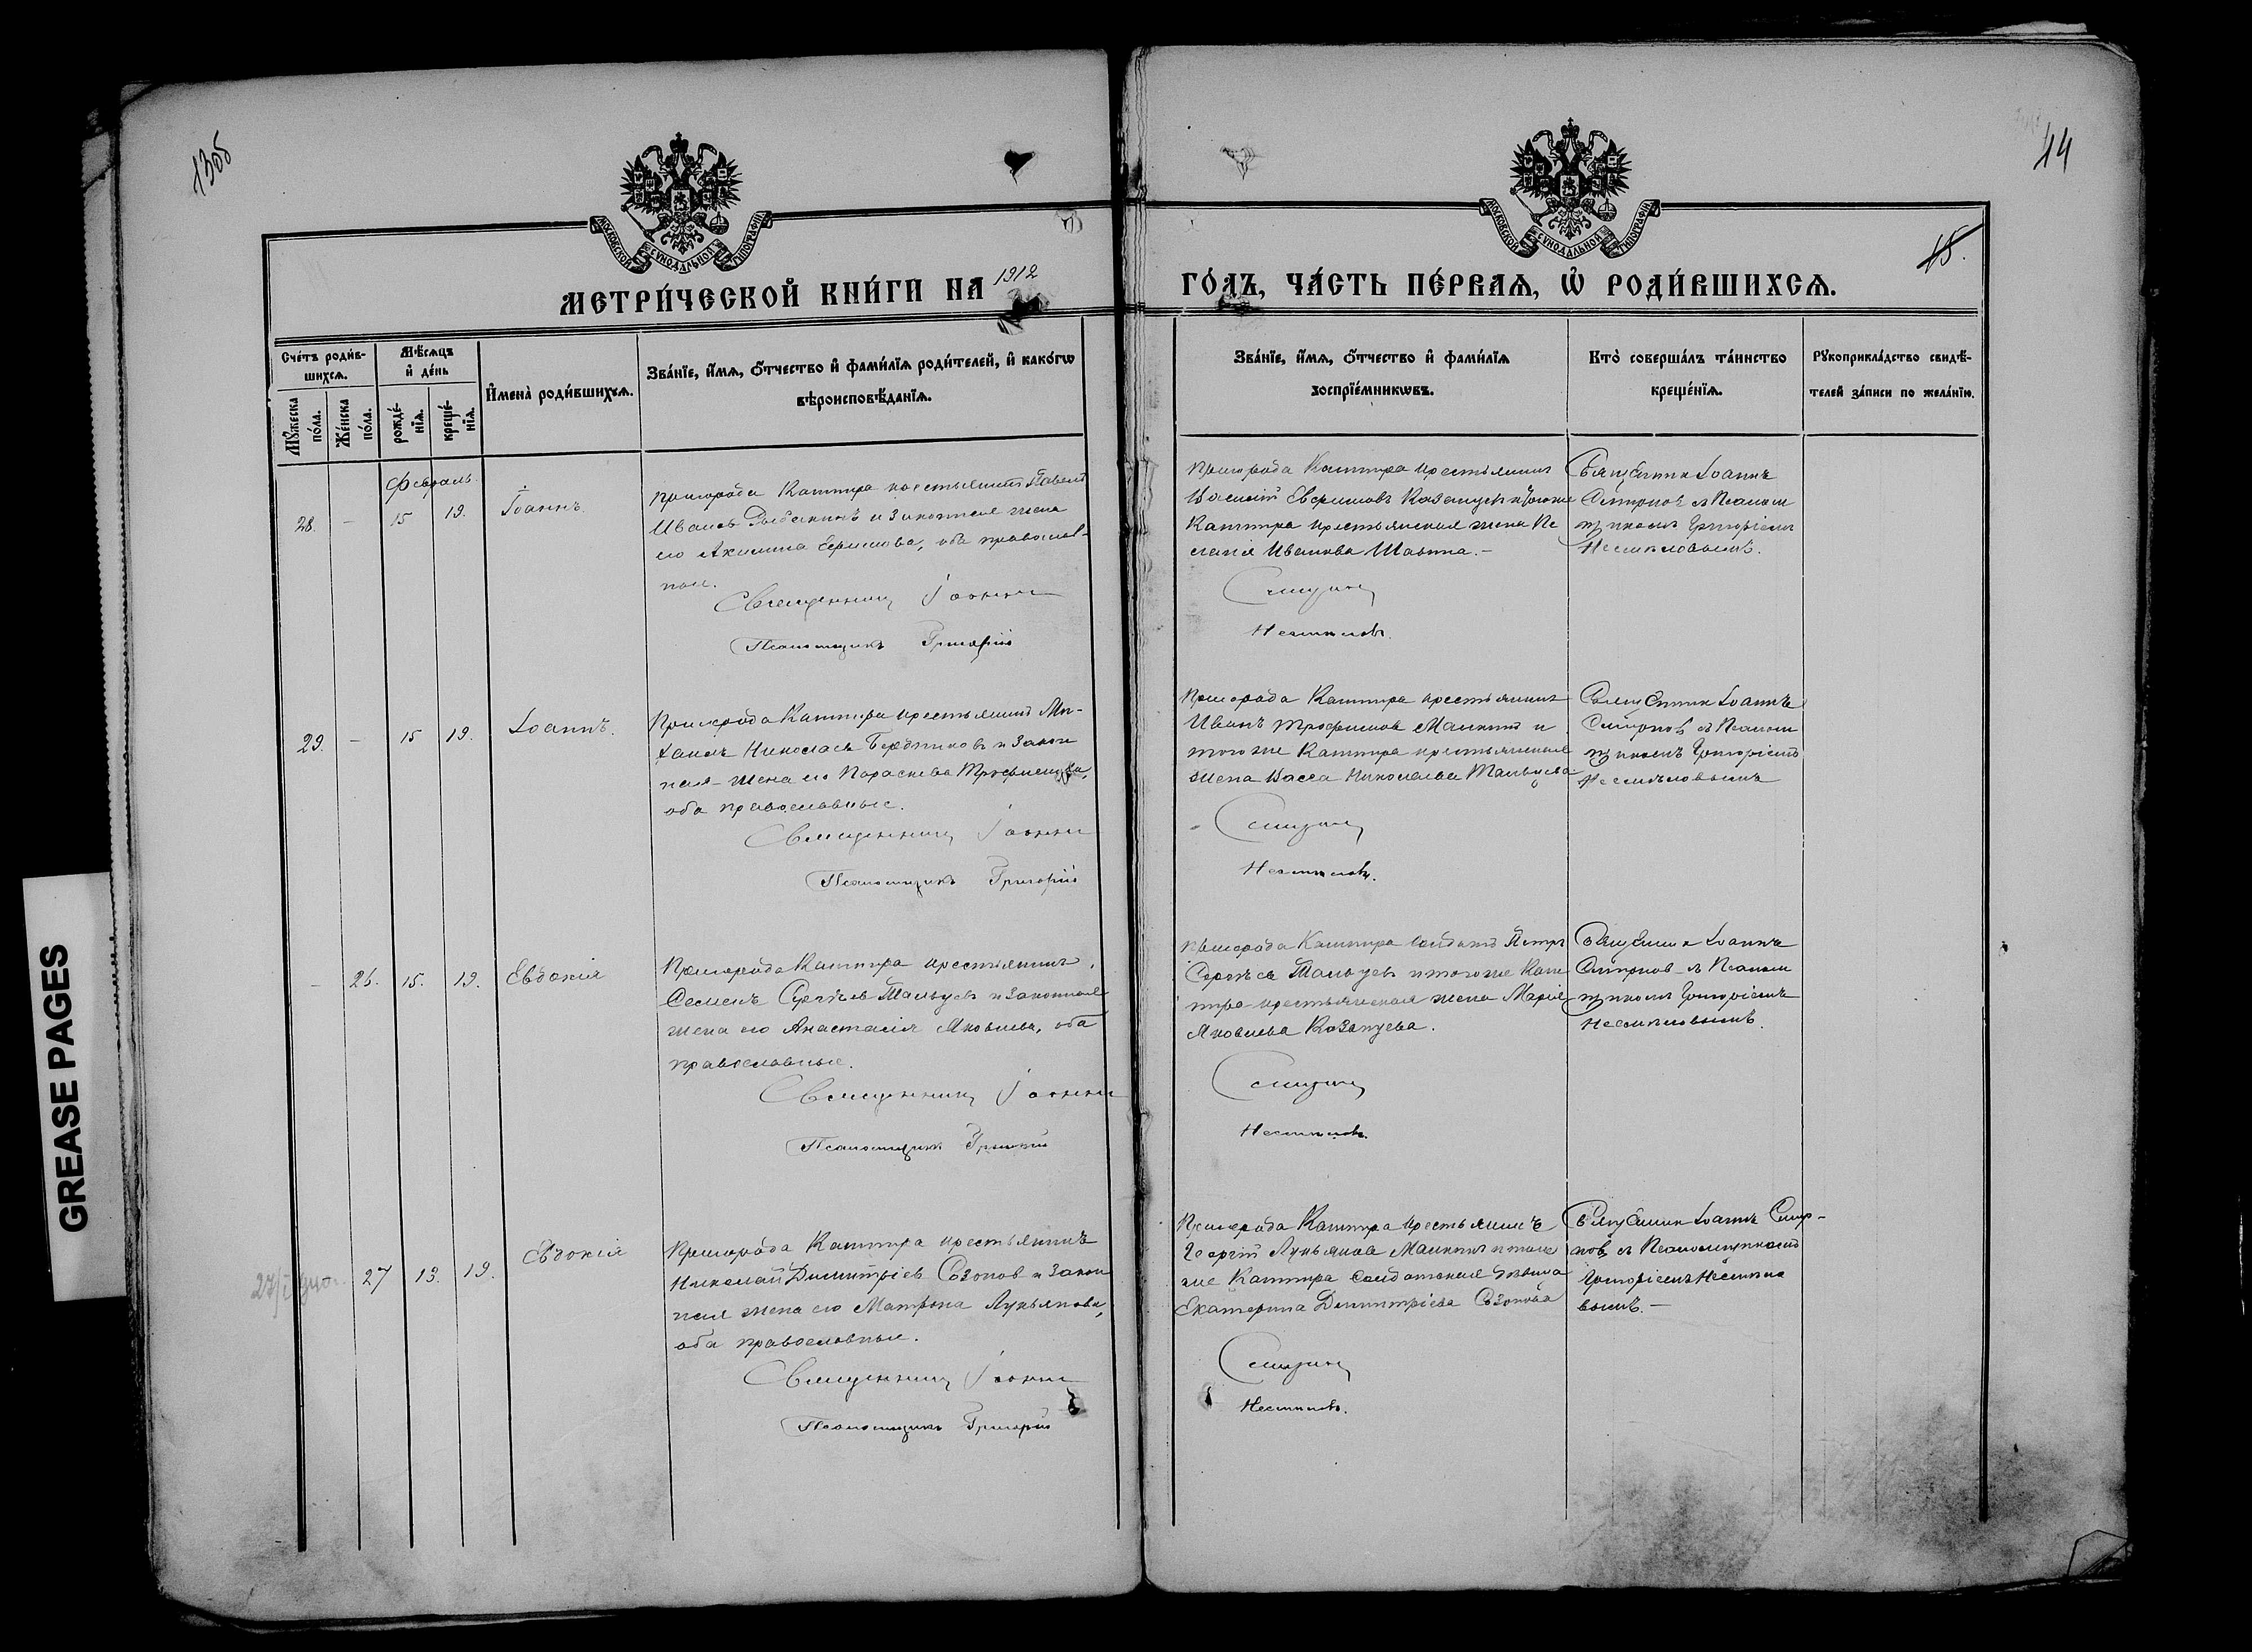 1305
44
15.
МОСКОВСКОЙ СУНОДАЛЬНОЙ ТИПОГРАФІИ
МОСКОВСКОЙ СУНОДАЛЬНОЙ ТИПОГРАФІИ
МЕТРИ́ЧЕСКОЙ КНИ́ГИ НА 1912
ГО́ДЪ, ЧА́СТЬ ПЕ́РВАѦ, Ѡ҆ РОДИ́ВШИХСѦ.
Сче́тъ роди́в-
шихсѧ.
Мѣ́сѧцъ
и҆ де́нь
И҆мена̀ роди́вшихсѧ.
Зва́нїе, и҆́мѧ, ѻ҆́тчество и҆ фами́лїѧ роди́телей, и҆ како́гѡ
вѣроисповѣ́данїѧ.
Мꙋ́жеска
по́ла.
Же́нска
по́ла.
рожде́-
нїѧ.
креще́-
нїѧ.
Зва́нїе, и҆́мѧ, ѻ҆́тчество и҆ фами́лїѧ
воспрїе́мникѡвъ.
Кто̀ соверша́лъ та́инство
креще́нїѧ.
Рꙋкоприкла́дство свидѣ́-
телей за́писи по жела́нїю.
Февраль
28. – 15 19. Іоаннъ.
пригорода Каштира крестьянинъ Павелъ
Ивановъ и законная жена
его Акилина Ефимова, оба православ-
ные.
Священникъ Іоаннъ
Псаломщикъ Григорій
Пригорода Каштира крестьянинъ
Василій
Каштира крестьянская жена
Иванова
Смирновъ
Священник Іоаннъ
Смирновъ съ Псалом
щикомъ Григоріемъ
29. – 15 19. Іоаннъ.
Пригорода Каштира крестьянинъ Ми-
хаилъ Николаевъ и закон
ная жена его Параскева Трофимова,
оба православные.
Священникъ Іоаннъ
Псаломщикъ Григорій
Пригорода Каштира крестьянинъ
Иванъ Трофимовъ Малкинъ и
того же Каштира крестьянская
жена Васса Николаева Тальцева
Смирновъ
Священник Іоаннъ
Смирновъ съ Псалом
щикомъ Григоріемъ
– 26. 15. 19. Евдокія
Пригорода Каштира крестьянинъ
Семенъ Сергѣевъ Тальцевъ и законная
жена его Анастасія Яковлева, оба
православные.
Священникъ Іоаннъ
Псаломщикъ Григорій
Пригорода Каштира солдатъ Петръ
Сергѣевъ Тальцевъ и того же Каш
тира крестьянская жена Марія
Яковлева Казанцева.
Смирновъ
Священник Іоаннъ
Смирновъ съ Псалом
щикомъ Григоріемъ
27 13. 19. Евдокія
Пригорода Каштира крестьянинъ
Николай Димитріевъ Созоновъ и закон
ная жена его Матрона Лукьянова,
оба православные.
Священникъ Іоаннъ
Псаломщикъ Григорій
Пригорода Каштира крестьянинъ
Георгій Лукьяновъ Малкинъ и того
же Каштира солдатская дѣвица
Екатерина Димитріева Созонова
Смирновъ
Священник Іоаннъ Смир-
новъ съ Псаломщикомъ
Григоріемъ
GREASE PAGES